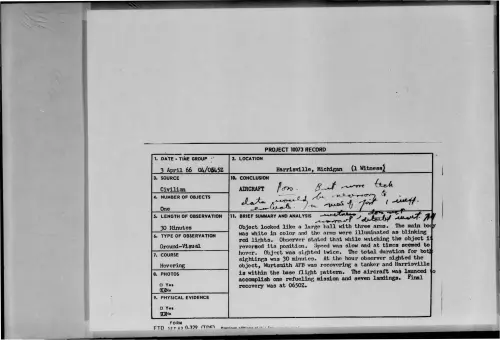 PROJECT 10073 RECORD
1. DATE - TIME GROUP
3 April 66 04/0545Z
2. LOCATION
Harrisville, Michigan (1 Witness)
3. SOURCE
Civilian
10. CONCLUSION
AIRCRAFT Poss. But more
data would be necessary to
evaluate
4. NUMBER OF OBJECTS
One
5. LENGTH OF OBSERVATION
30 Minutes
11. BRIEF SUMMARY AND ANALYSIS
Object looked like a large ball with three arms. The main body
was white in color and the arms were illuminated as blinking
red lights. Observer stated that while watching the object it
reversed its position. Speed was slow and at times seemed to
hover. Object was sighted twice. The total duration for both
sightings was 30 minutes. At the hour observer sighted the
object, Wurtsmith AFB was recovering a tanker and Harrisville
is within the base flight pattern. The aircraft was launced to
accomplish one refueling mission and seven landings. Final
recovery was at 0650Z.
6. TYPE OF OBSERVATION
Ground-Visual
7. COURSE
Hovering
8. PHOTOS
Yes
No
9. PHYSICAL EVIDENCE
Yes
No
FORM
FTD SEP 63 0-329 (TDE)